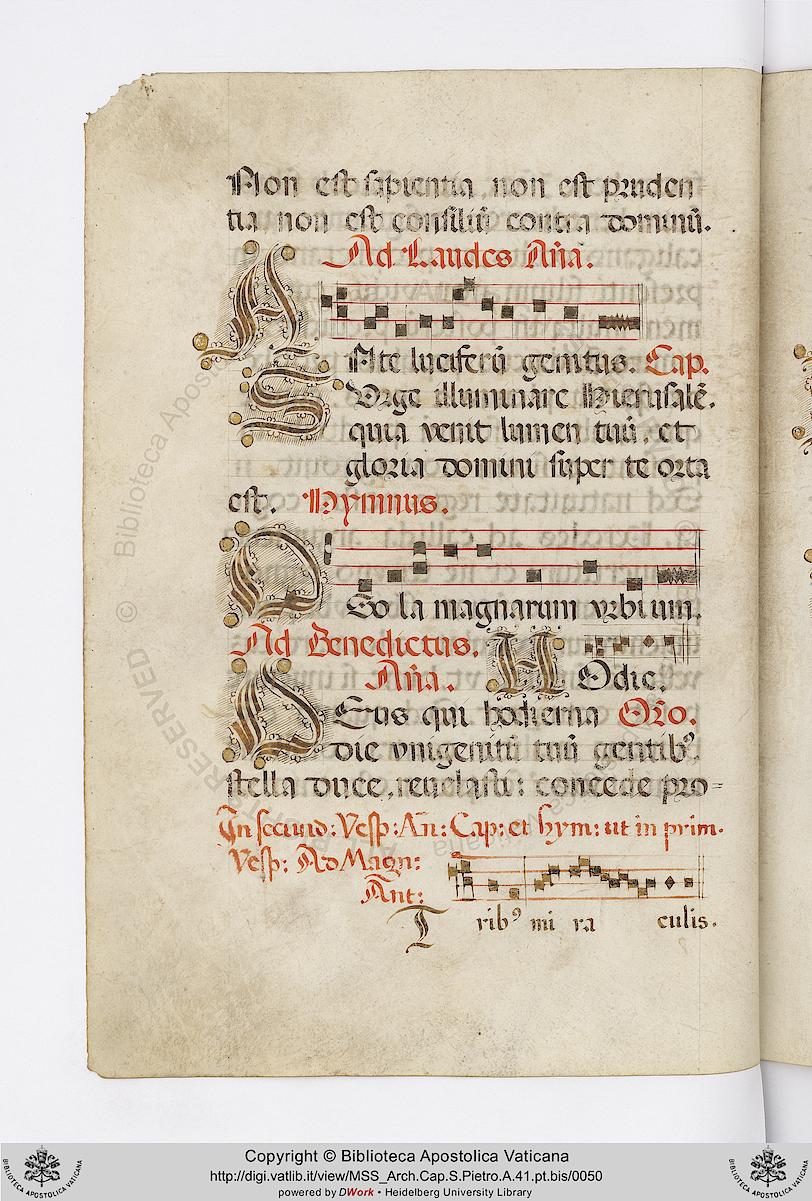 Non est sapientia, non est pruden
tia non est consiliū contra dominū.
Ad Laudes Aña.
ANte luciferū genitus. Cap.
SUrge illuminare Hierusalē.
quia venit lumen tuū, et
gloria domini super te orta
est. Hymnus.
OSo la magnarum vrbium.
Ad Benedictus.
Aña. HOdie.
DEus qui hodierna Oro.
die vnigenitū tuū gentibꝰ,
stella duce, reuelasti: concede pro=
In secund: Vesp: An̄: Cap: et hym: ut in prim.
Vesp: Ad Magn:
Ant:
Tribꝰ mi ra culis.
© Biblioteca Apostolica Vaticana
ALL RIGHTS RESERVED
Copyright © Biblioteca Apostolica Vaticana
http://digi.vatlib.it/view/MSS_Arch.Cap.S.Pietro.A.41.pt.bis/0050
powered by DWork • Heidelberg University Library
BIBLIOTECA APOSTOLICA VATICANA
BIBLIOTECA APOSTOLICA VATICANA